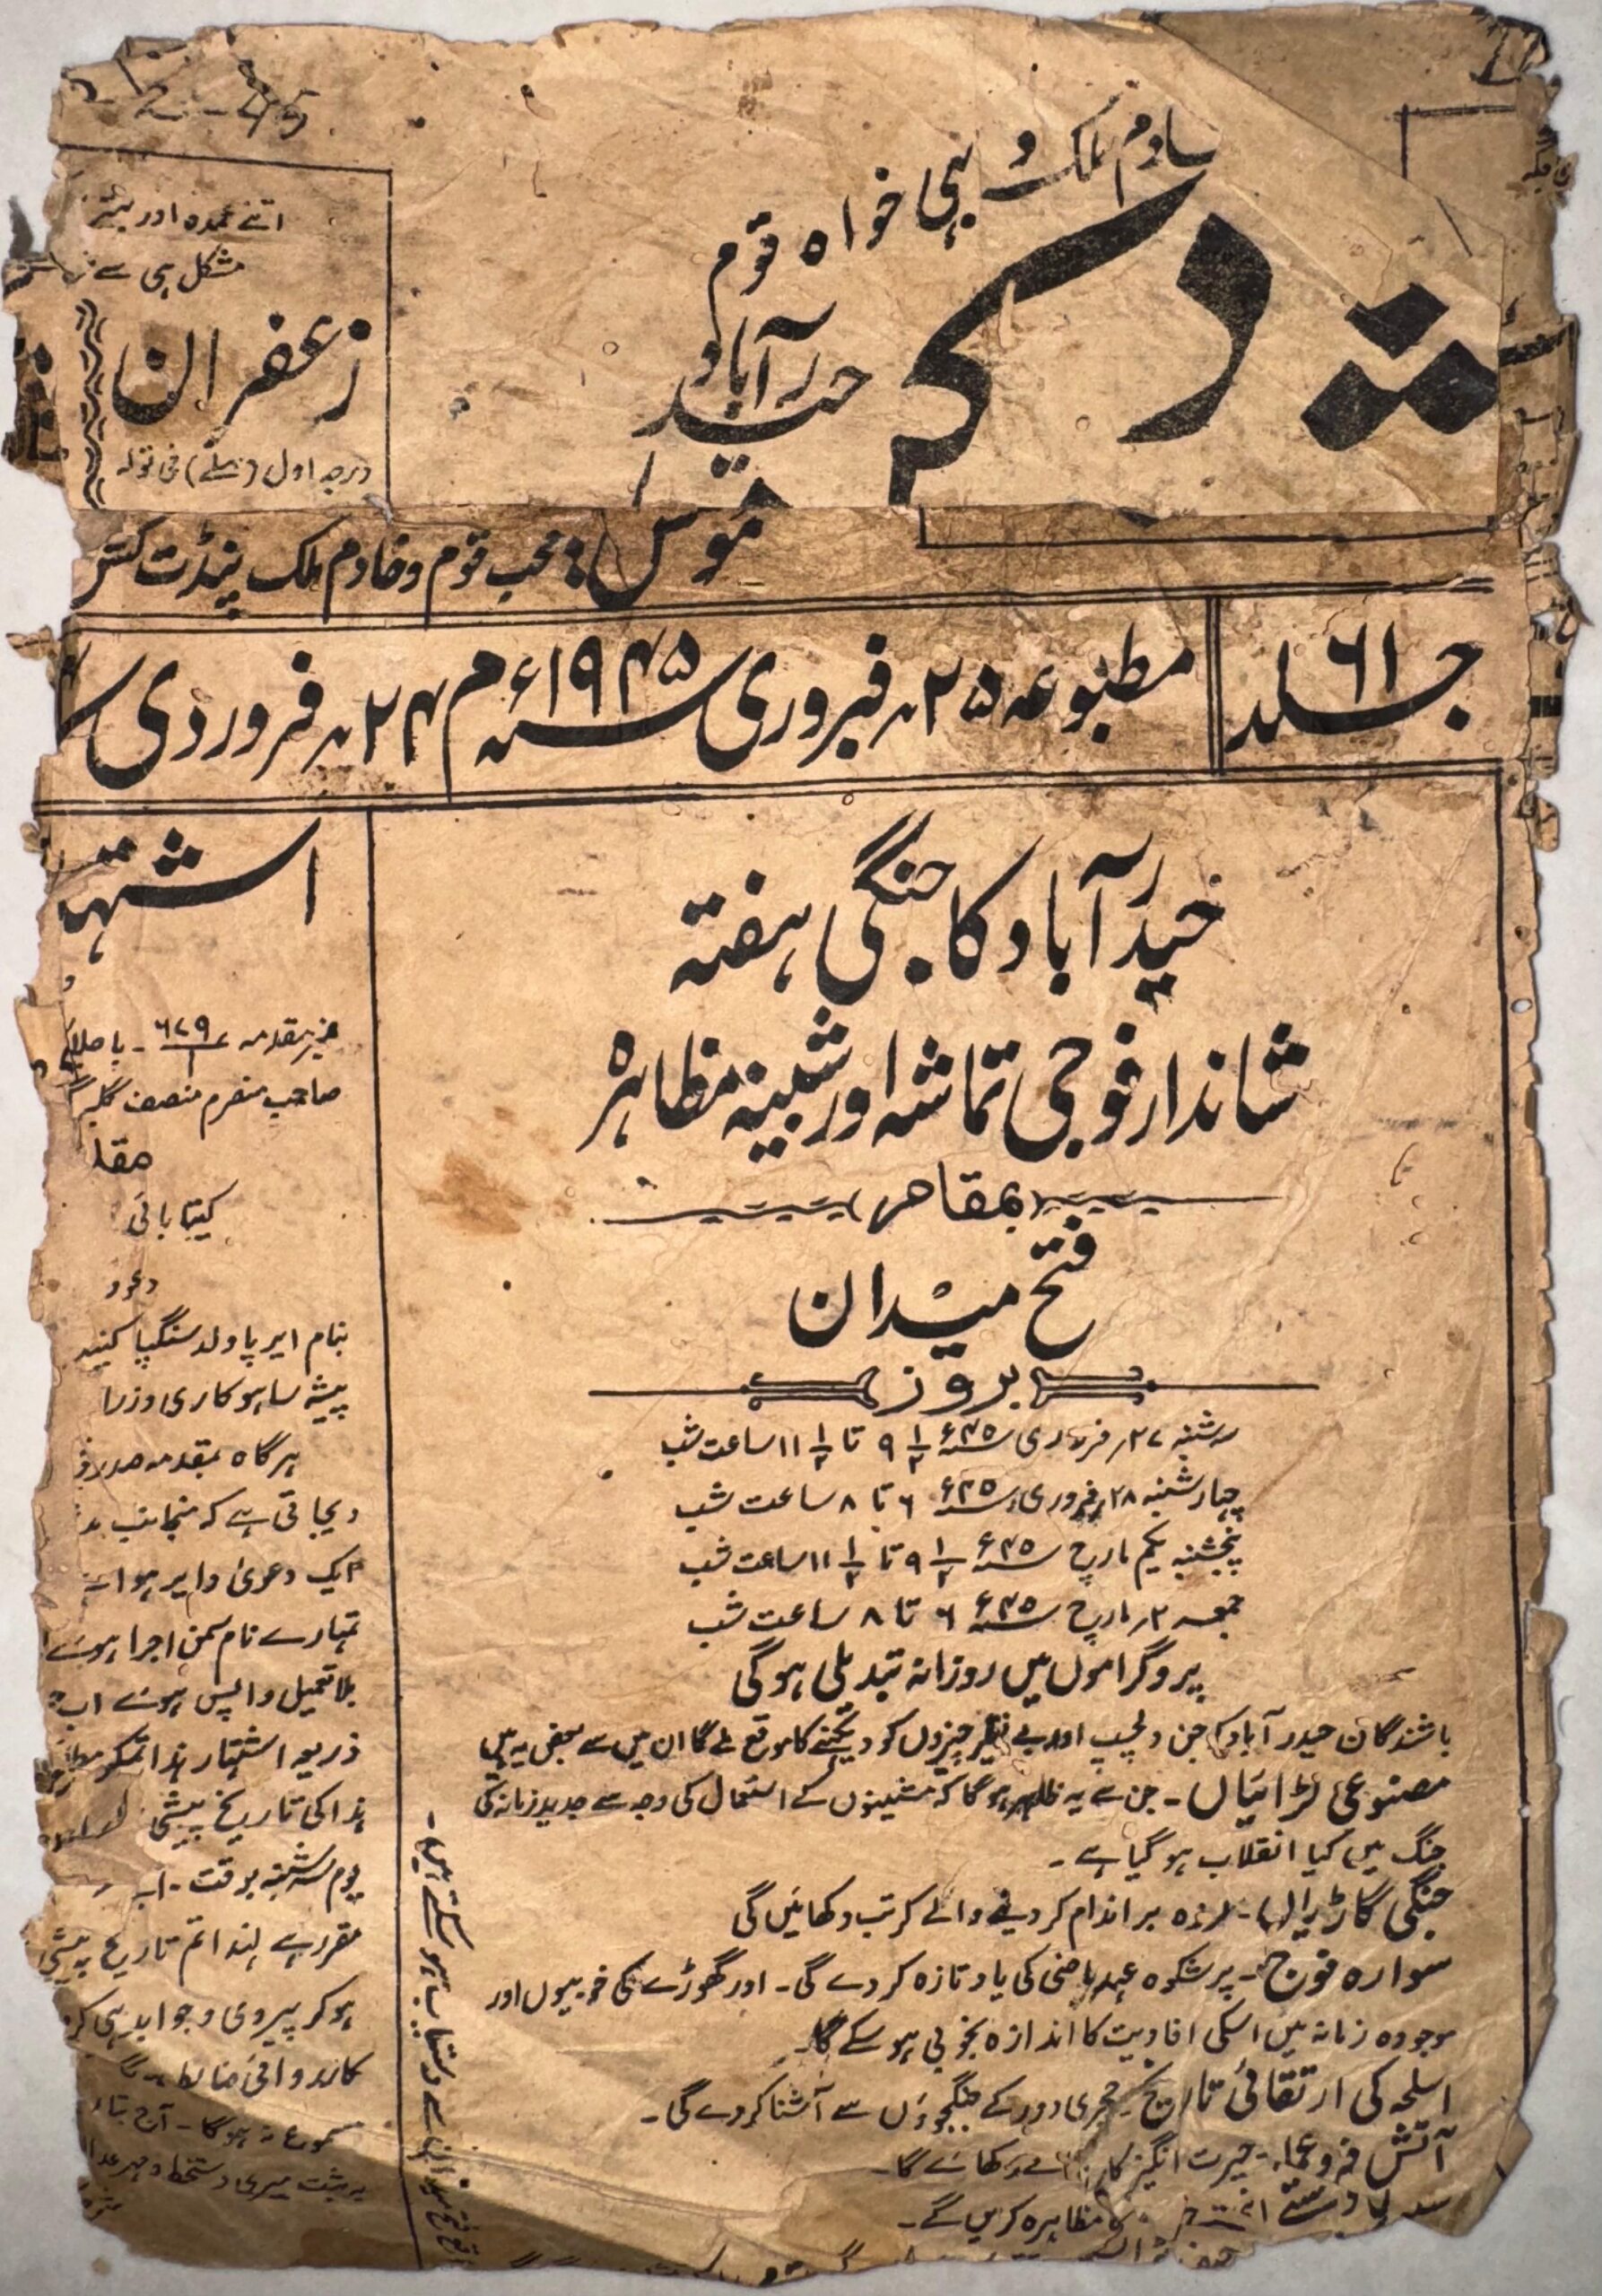 ملک و بہی خواہ قوم
حیدرآباد
زعفران
درجہ اول فی تولہ
مشکل ہی سے
محب قوم و خادم ملک پنڈت
جلد ۶۱
مطبوعہ ۲۵ر فبروری سنہ ۱۹۴۵ء م ۲۴ر فروردی
حیدرآباد کا جنگی ہفتہ
شاندار فوجی تماشہ اور شبینہ مظاہرے
بمقام
فتح میدان
بروز
سہ شنبہ ۲۷ر فروری سنہ ۴۵ء ۹ ۱/۲ تا ۱۱ ۱/۲ ساعت شب
چہار شنبہ ۲۸ر فروری سنہ ۴۵ء ۶ تا ۸ ساعت شب
پنجشنبہ یکم مارچ سنہ ۴۵ء ۹ ۱/۲ تا ۱۱ ۱/۲ ساعت شب
جمعہ ۲ر مارچ سنہ ۴۵ء ۶ تا ۸ ساعت شب
پروگراموں میں روزانہ تبدیلی ہوگی
باشندگان حیدرآباد کو جن دلچسپ اور بے نظیر چیزوں کو دیکھنے کا موقع ملے گا ان میں سے بعض یہ ہیں
مصنوعی لڑائیاں ۔ جن سے یہ ظاہر ہوگا کہ مشینوں کے استعمال کی وجہ سے جدید زمانہ کی
جنگ میں کیا انقلاب ہوگیا ہے ۔
جنگی گاڑیاں ۔ لرزہ براندام کر دینے والے کرتب دکھائیں گی
سوارہ فوج ۔ پرشکوہ عہد ماضی کی یاد تازہ کر دے گی ۔ اور گھوڑے کی خوبیوں اور
موجودہ زمانہ میں اسکی افادیت کا اندازہ بخوبی ہو سکے گا ۔
اسلحہ کی ارتقائی تاریخ ۔ حجری دور کے جنگجوؤں سے آشنا کر دے گی ۔
آتش فروعماء ۔ حیرت انگیز دکھائے گا ۔
دستے مظاہرہ کریں گے ۔
سے دستیاب ہو سکتے ہیں ۔
اشتہا
نمبر مقدمہ ۶۷۹/۱ ۔ باجلاس
صاحب منصرم منصف گلبرگ
مقد
گیتا بائی
دعوے
بنام ایرپا ولد سنگپا
پیشہ ساہوکاری و زرا
ہرگاہ بمقدمہ صدر
دیجاتی ہے کہ منجانب
ایک دعویٰ دایر ہوا
تمہارے نام سمن اجرا ہوئے
بلا تعمیل واپس ہوئے اب
ذریعہ اشتہار ہذا تمکو
ہذا کی تاریخ پیشی
یوم سہ شنبہ بوقت
مقرر ہے لہذا تم تاریخ پیشی
ہو کر پیروی و جوابدہی کر
کارروائی ضابطہ
نہ ہوگا ۔ آج بتا
بہ ثبت میری دستخط و مہر